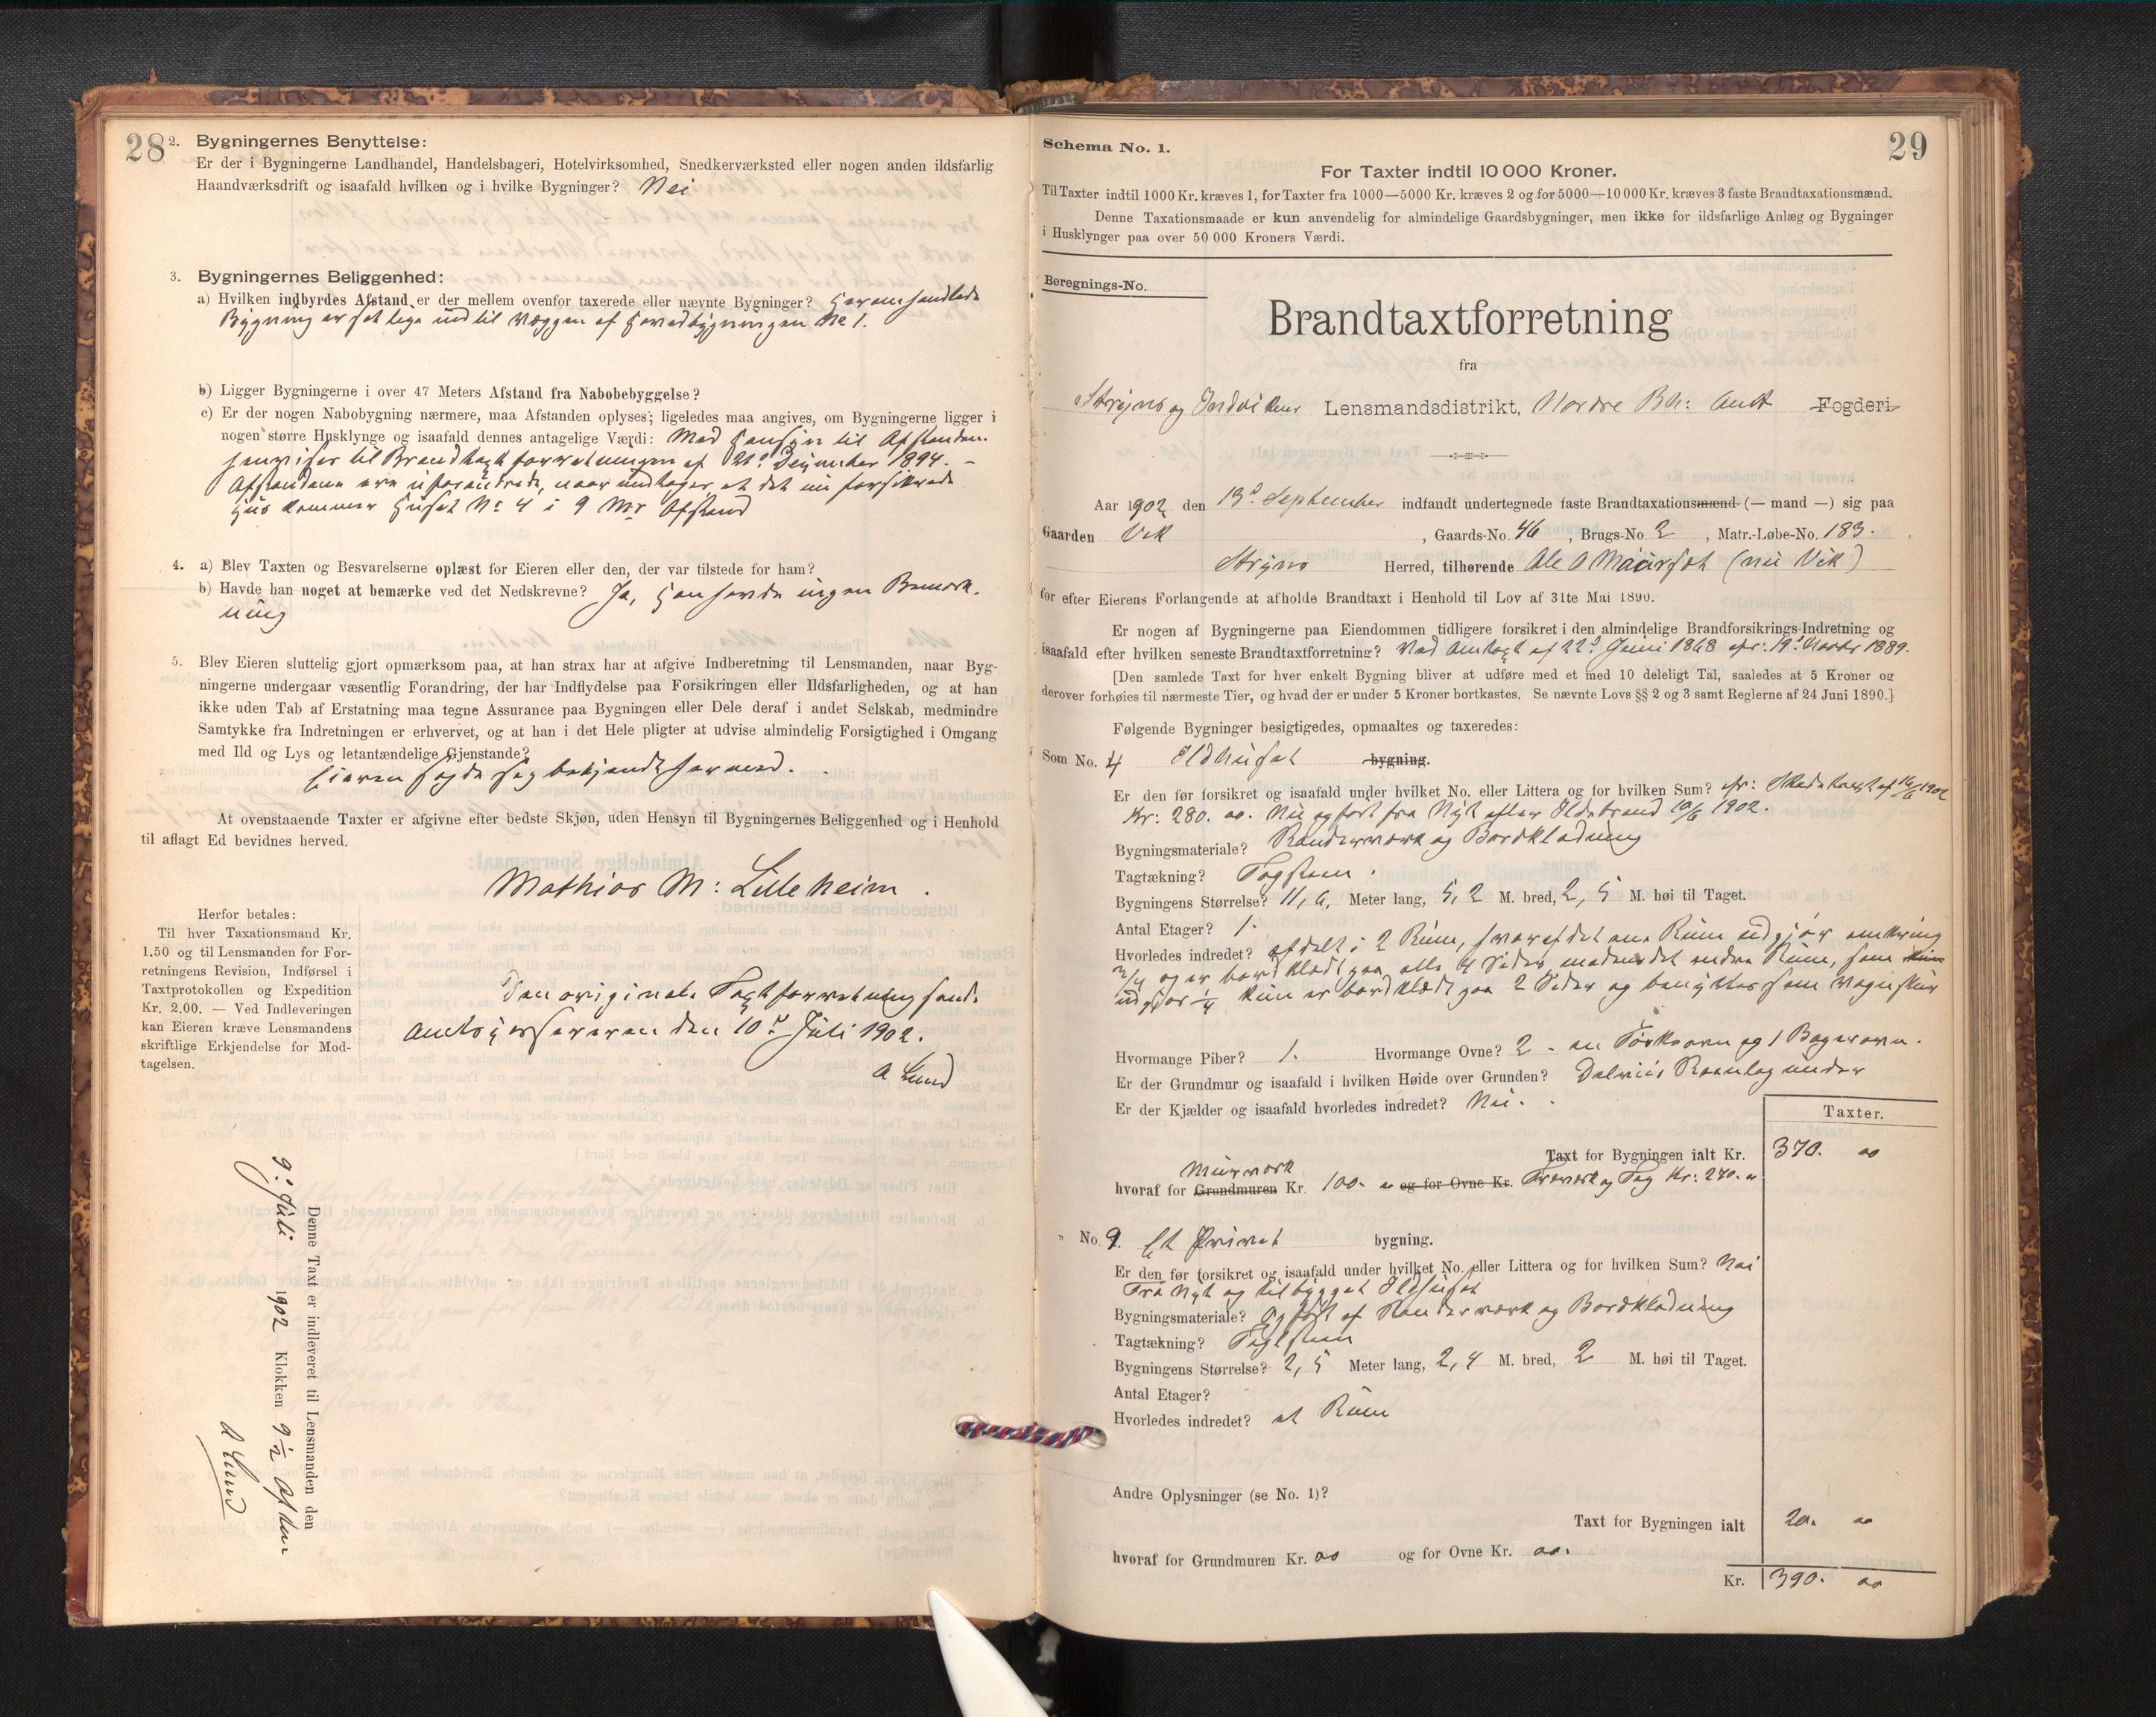 28
2. Bygningernes Benyttelse:
Er der i Bygningerne Landhandel, Handelsbageri, Hotelvirksomhed, Snedkerværksted eller nogen anden ildsfarlig
Haandværksdrift og isaafald hvilken og i hvilke Bygninger? Nei
3. Bygningernes Beliggenhed:
a) Hvilken indbyrdes Afstand er der mellem ovenfor taxerede eller nævnte Bygninger? Heromhandlede
Bygning er sat lige ind til Væggen af Hovedbygningen No 1.
b) Ligger Bygningerne i over 47 Meters Afstand fra Nabobebyggelse?
c) Er der nogen Nabobygning nærmere, maa Afstanden oplyses; ligeledes maa angives, om Bygningerne ligger i
nogen større Husklynge og isaafald dennes antagelige Værdi: Med Hensyn til Afstanden
henvises til Brandtaxtforretningen af 21de December 1894. –
Afstandene ere uforandrede, naar undtages at det nu forsikrede
Hus kommer Huset No 4 i 9 Mr Afstand
4. a) Blev Taxten og Besvarelserne oplæst for Eieren eller den, der var tilstede for ham?
b) Havde han noget at bemærke ved det Nedskrevne? Ja, Han havde ingen Bemærk-
ning
5. Blev Eieren sluttelig gjort opmærksom paa, at han strax har at afgive Indberetning til Lensmanden, naar Byg-
ningerne undergaar væsentlig Forandring, der har Indflydelse paa Forsikringen eller Ildsfarligheden, og at han
ikke uden Tab af Erstatning maa tegne Assurance paa Bygningen eller Dele deraf i andet Selskab, medmindre
Samtykke fra Indretningen er erhvervet, og at han i det Hele pligter at udvise almindelig Forsigtighed i Omgang
med Ild og Lys og letantændelige Gjenstande?
Eieren sagde sig bekjendt hermed.
At ovenstaaende Taxter er afgivne efter bedste Skjøn, uden Hensyn til Bygningernes Beliggenhed og i Henhold
til aflagt Ed bevidnes herved.
Mathias M: Lilleheim.
Herfor betales:
Til hver Taxationsmand Kr.
1.50 og til Lensmanden for For-
retningens Revision, Indførsel i
Taxtprotokollen og Expedition
Kr. 2.00. — Ved Indleveringen
kan Eieren kræve Lensmandens
skriftlige Erkjendelse for Mod-
tagelsen.
Den originale Taxtforretning sendt
Amtets den 10de Juli 1902.
A Lund
Denne Taxt er indleveret til Lensmanden den
9: Juli 1902 Klokken 9 1/2 Aften
A Lund
29
Schema No. 1.
For Taxter indtil 10 000 Kroner.
Til Taxter indtil 1000 Kr. kræves 1, for Taxter fra 1000—5000 Kr. kræves 2 og for 5000—10 000 Kr. kræves 3 faste Brandtaxationsmænd.
Denne Taxationsmaade er kun anvendelig for almindelige Gaardsbygninger, men ikke for ildsfarlige Anlæg og Bygninger
i Husklynger paa over 50 000 Kroners Værdi.
Beregnings-No.
Brandtaxtforretning
fra
Stryns og Indvikens Lensmandsdistrikt, Nordre Bh: Amt Fogderi
Aar 1902 den 13de September indfandt undertegnede faste Brandtaxationsmænd (— mand —) sig paa
Gaarden Vik, Gaards-No. 46, Brugs-No. 2, Matr.-Løbe-No. 183.
Stryns Herred, tilhørende Ole O (nu Vik)
for efter Eierens Forlangende at afholde Brandtaxt i Henhold til Lov af 31te Mai 1890.
Er nogen af Bygningerne paa Eiendommen tidligere forsikret i den almindelige Brandforsikrings-Indretning og
isaafald efter hvilken seneste Brandtaxtforretning? Ved Omtaxt af 22de Juni 1868 cfr: 19de Novbr 1889.
[Den samlede Taxt for hver enkelt Bygning bliver at udføre med et med 10 deleligt Tal, saaledes at 5 Kroner og
derover forhøies til nærmeste Tier, og hvad der er under 5 Kroner bortkastes. Se nævnte Lovs §§ 2 og 3 samt Reglerne af 24 Juni 1890.]
Følgende Bygninger besigtigedes, opmaaltes og taxeredes:
Som No. 4 Ildhuset bygning.
Er den før forsikret og isaafald under hvilket No. eller Littera og for hvilken Sum? cfr: Skadetaxt af 16/6 1902
Kr: 280. 00. Nu opført fra Nyt efter Ildebrand 10/6 1902.
Bygningsmateriale? Bordklædning
Tagtækning? Tagsten.
Bygningens Størrelse? 11,6, Meter lang, 5,2 M. bred, 2,5 M. høi til Taget.
Antal Etager? 1.
Hvorledes indredet? afdelt i 2 Rum, hvoraf det ene Rum udgjør omkring
3/4 og er bordklædt paa alle 4 Sider medens det andre Rum, som kun
udgjør 1/4 kun er bordklædt paa 2 Sider og benyttes som Vognskur
Hvormange Piber? 1. Hvormange Ovne? 2 – en Tørkeovn og 1 Bagerovn.
Er der Grundmur og isaafald i hvilken Høide over Grunden? Delvis Stenlag under
Er der Kjælder og isaafald hvorledes indredet? Nei.
Taxter.
Taxt for Bygningen ialt Kr. 370. 00
Murværk
hvoraf for Grundmuren Kr. 100. 00 og for Ovne Kr. Træværk og Tag Kr: 270. 00
" No. 9. Et Privet bygning.
Er den før forsikret og isaafald under hvilket No. eller Littera og for hvilken Sum? Nei
Fra Nyt og tilbygget Ildhuset
Bygningsmateriale? Opført af Bordklædning
Tagtækning? Taglsten
Bygningens Størrelse? 2,5 Meter lang, 2,4 M. bred, 2 M. høi til Taget.
Antal Etager?
Hvorledes indredet? et Rum
Andre Oplysninger (se No. 1)?
Taxt for Bygningen ialt 20. 00
hvoraf for Grundmuren Kr. 00 og for Ovne Kr. 00.
Kr. 390. 00